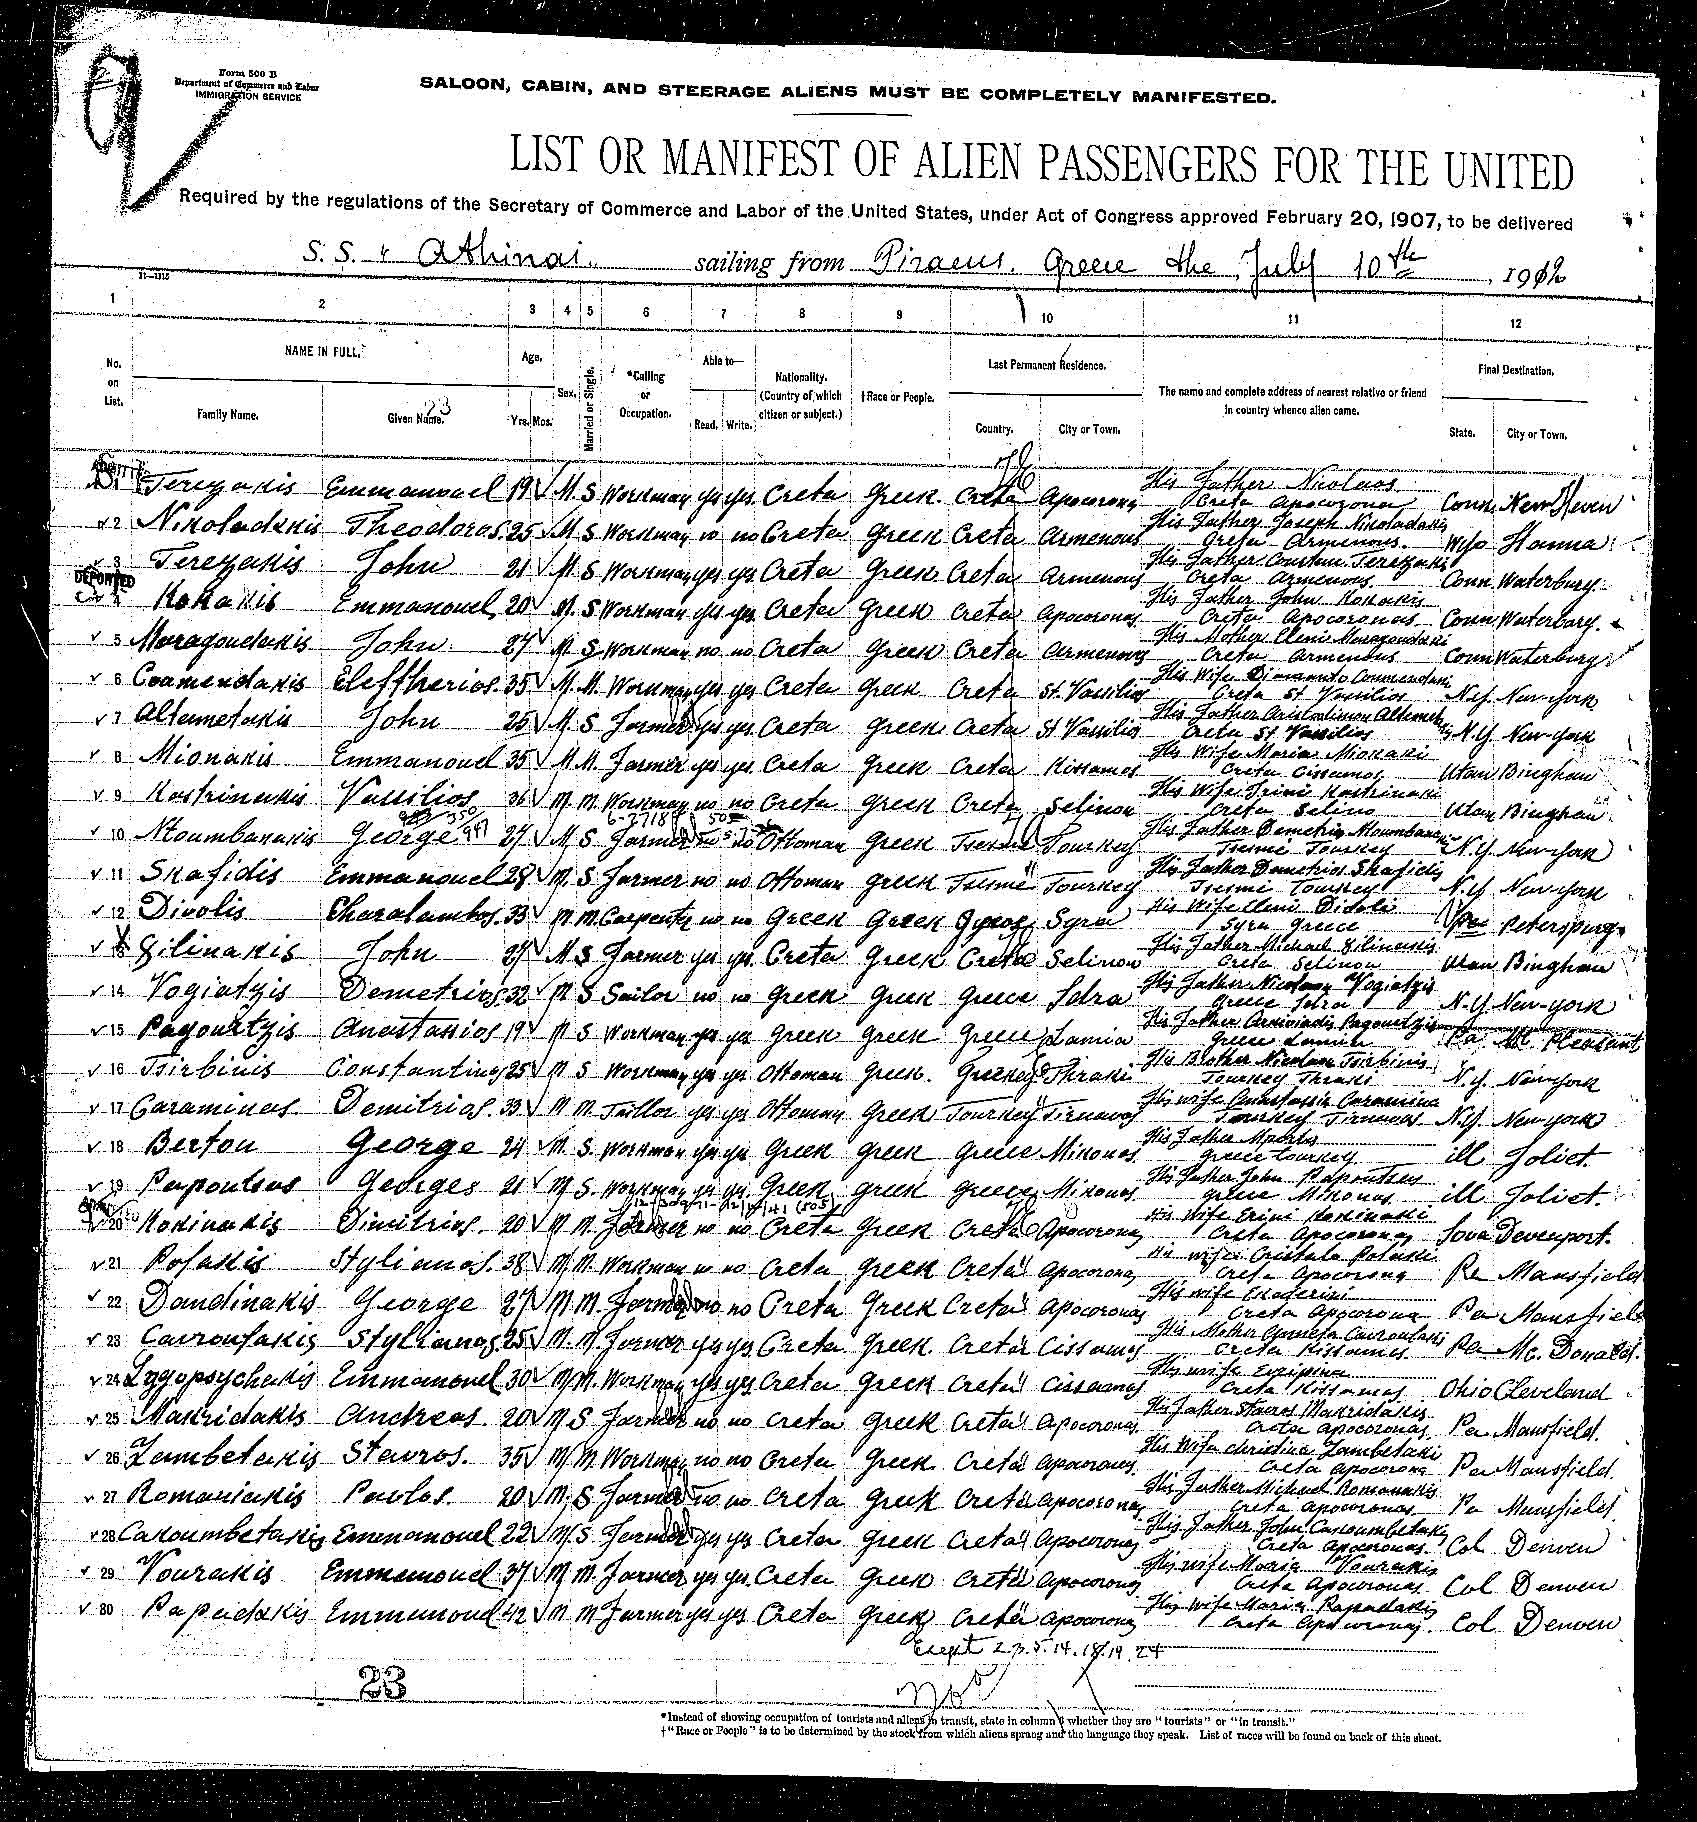 Form 500 B
Department of Commerce and Labor
IMMIGRATION SERVICE
SALOON, CABIN, AND STEERAGE ALIENS MUST BE COMPLETELY MANIFESTED.
LIST OR MANIFEST OF ALIEN PASSENGERS FOR THE UNITED
Required by the regulations of the Secretary of Commerce and Labor of the United States, under Act of Congress approved February 20, 1907, to be delivered
S. S. Athinai. sailing from Piraeus. Greece the July 10th, 1912
1 2 3 4 5 6 7 8 9 10 11 12
No. on List. NAME IN FULL. Age. Sex. Married or Single. *Calling or Occupation. Able to— Nationality. (Country of which citizen or subject.) †Race or People. Last Permanent Residence. The name and complete address of nearest relative or friend in country whence alien came. Final Destination.
Family Name. Given Name. Yrs. Mos. Read. Write. Country. City or Town. State. City or Town.
23
Terezakis Emmanouel 19 M S Workman yes yes Creta Greek Creta Apocorona His Father Nicolaos Creta Apocorona Conn. New Heven
2 Nikoladakis Theodoros 25 M S Workman no no Creta Greek Creta Armenous His Father Joseph Nikoladakis Creta Armenous Hanna
3 Terezakis John 21 M S Workman yes yes Creta Greek Creta Armenous His Father Constan Terezakis Creta Armenous Conn Waterbury
DEPORTED
4 Kokakis Emmanouel 20 M S Workman yes yes Creta Greek Creta Apocoronas His Father John Kokakis Creta Apocoronas Conn Waterbury
5 Maragoudakis John 27 M S Workman no no Creta Greek Creta Armenous His Mother Eleni Maragoudaki Creta Armenous Conn Waterbury
6 Coamendakis Eleftherios 35 M M Workman yes yes Creta Greek Creta St. Vassilios His Wife Creta St Vassilios N.Y. New-York
7 Altemetakis John 25 M S Farmer yes yes Creta Greek Creta St Vassilios His Father Creta St Vassilios N.Y New-York
8 Mionakis Emmanouel 35 M M Farmer yes yes Creta Greek Creta Kissamos His Wife Maria Mionaki Creta Cissamos Utan Binghan
9 Kostrinakis Vassilios 36 M M Workman no no Creta Greek Creta Selinou His Wife Irini Kostrinaki Creta Selino Utan Binghan
10 Moumbanakis George 27 M S Farmer no no Ottoman Greek Tsesme Tourkey His Father Demetrio Tsesme Tourkey N.Y New-York
11 Skafidis Emmanouel 28 M S Farmer no no Ottoman Greek Tsesme Tourkey His Father Demetrios Skafidis Tsesme Tourkey N.Y New-York
12 Divolis Charalambos 33 M M Carpenter no no Greek Greek Syra His Wife Eleni Divoli Syra Greece Petersburg
Gilinakis John 27 M S Farmer yes yes Creta Greek Creta Selinon His Father Michael Gilinakis Creta Selinon Utan Binghan
14 Vogiatzis Demetrios 32 M S Sailor no no Greek Greek Greece Idra His Father Nicolaos Vogiatzis Greece Idra N.Y New-York
15 Pagourtzis Anastasios 19 M S Workman yes yes Greek Greek Greece Lamia His Father Greece Lamia Pa Mt. Pleasant
16 Tsirbinis Constantinos 25 M S Workman yes yes Ottoman Greek. Thraki His Brother Nicolaos Tsirbinis Tourkey Thraki N.Y. New-York
17 Caraminas Demitrios 33 M M Taillor yes yes Ottoman Greek Tourkey Tirnavos His wife Anastassia Caramina Tourkey Tirnavos N.Y. New-York
18 Bertou George 24 M S Workman yes yes Greek Greek Greece Mikonos His Father Greece tourkey ill Joliet.
19 Papoutsas Georges 21 M S. Workman yes yes Greek Greek Greece Mikonos His Father John Papoutsas Greece Mikonos ill Joliet.
20 Kokinakis Dimitrius 20 M M Farmer no no Creta Greek Creta Apocorona His Wife Erini Kokinaki Creta Apocorona Iova Devenport.
21 Polakis Stylianos. 38 M M Workman no no Creta Greek Creta Apocorona His wife Cristala Polaki Creta Apocorona Pa Mansfield
22 Dandinakis George 27 M M Farmer no no Creta Greek Creta Apocoronas His wife Ekaterini Creta Apocorona Pa Mansfield
23 Cavroulakis Stylianos 25 M M Farmer yes yes Creta Greek. Creta Cissamos His Mother Cavroulaki Creta Kissamos Pa Mc. Donald.
24 Zygopsychakis Emmanouel 30 M M Workman yes yes Creta Greek Creta Cissamos His wife Creta Kissamos Ohio Cleveland
25 Makridakis Andreas. 20 M S Farmer no no Creta Greek Creta Apocoronas His Father Stavros Makridakis Creta Apocoronas Pa Mansfield.
26 Zambetakis Stavros. 35 M M Workman no no Creta Greek Creta Apocoronas His Wife Christina Zambetaki Creta Apocorona Pa Mansfield.
27 Romaniakis Pavlos. 20 M S Farmer no no Creta Greek Creta Apocoronas His Father Michael Romaniakis Creta Apocoronas Pa Mansfield.
28 Caroumbetakis Emmanouel 22 M S Farmer yes yes Creta Greek Creta Apocoronas His Father John Caroumbetakis Creta Apocoronas Col Denven
29 Vourakis Emmanouel 37 M M Farmer yes yes Creta Greek Creta Apocoronas His wife Maria Vourakis Creta Apocoronas Col Denven
30 Papadakis Emmanouel 42 M M Farmer yes yes Creta Greek Creta Apocorona His Wife Maria Papadakis Creta Apocoronas Col Denven
Exept 2.3.5.14.18.19.24
23
*Instead of showing occupation of tourists and aliens in transit, state in column 6 whether they are "tourists" or "in transit."
†"Race or People" is to be determined by the stock from which aliens sprang and the language they speak. List of races will be found on back of this sheet.